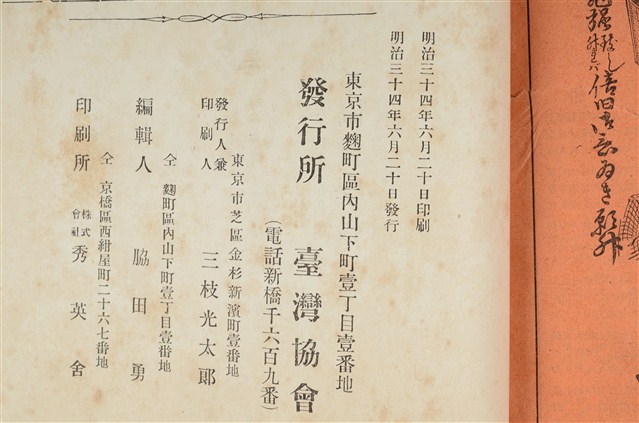 明治三十四年六月二十日印刷
明治三十四年六月二十日發行
東京市麴町區內山下町壹丁目壹番地
發行所 臺灣協會
(電話新橋千六百九番)
東京市芝區金杉新濱町壹番地
發行人兼印刷人 三枝光太郎
仝 麴町區內山下町壹丁目壹番地
編輯人 脇田勇
仝 京橋區西紺屋町二十六七番地
印刷所 株式會社 秀英舍